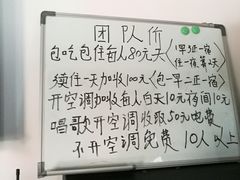 团队价
包吃包住每人80元/天(早3正一宿
住一宿,第2天
续住一天加收100元(包一早二正一宿
开空调加收每人白天10元夜间10元
唱歌开空调收取50元电费
不开空调免费 10人以上